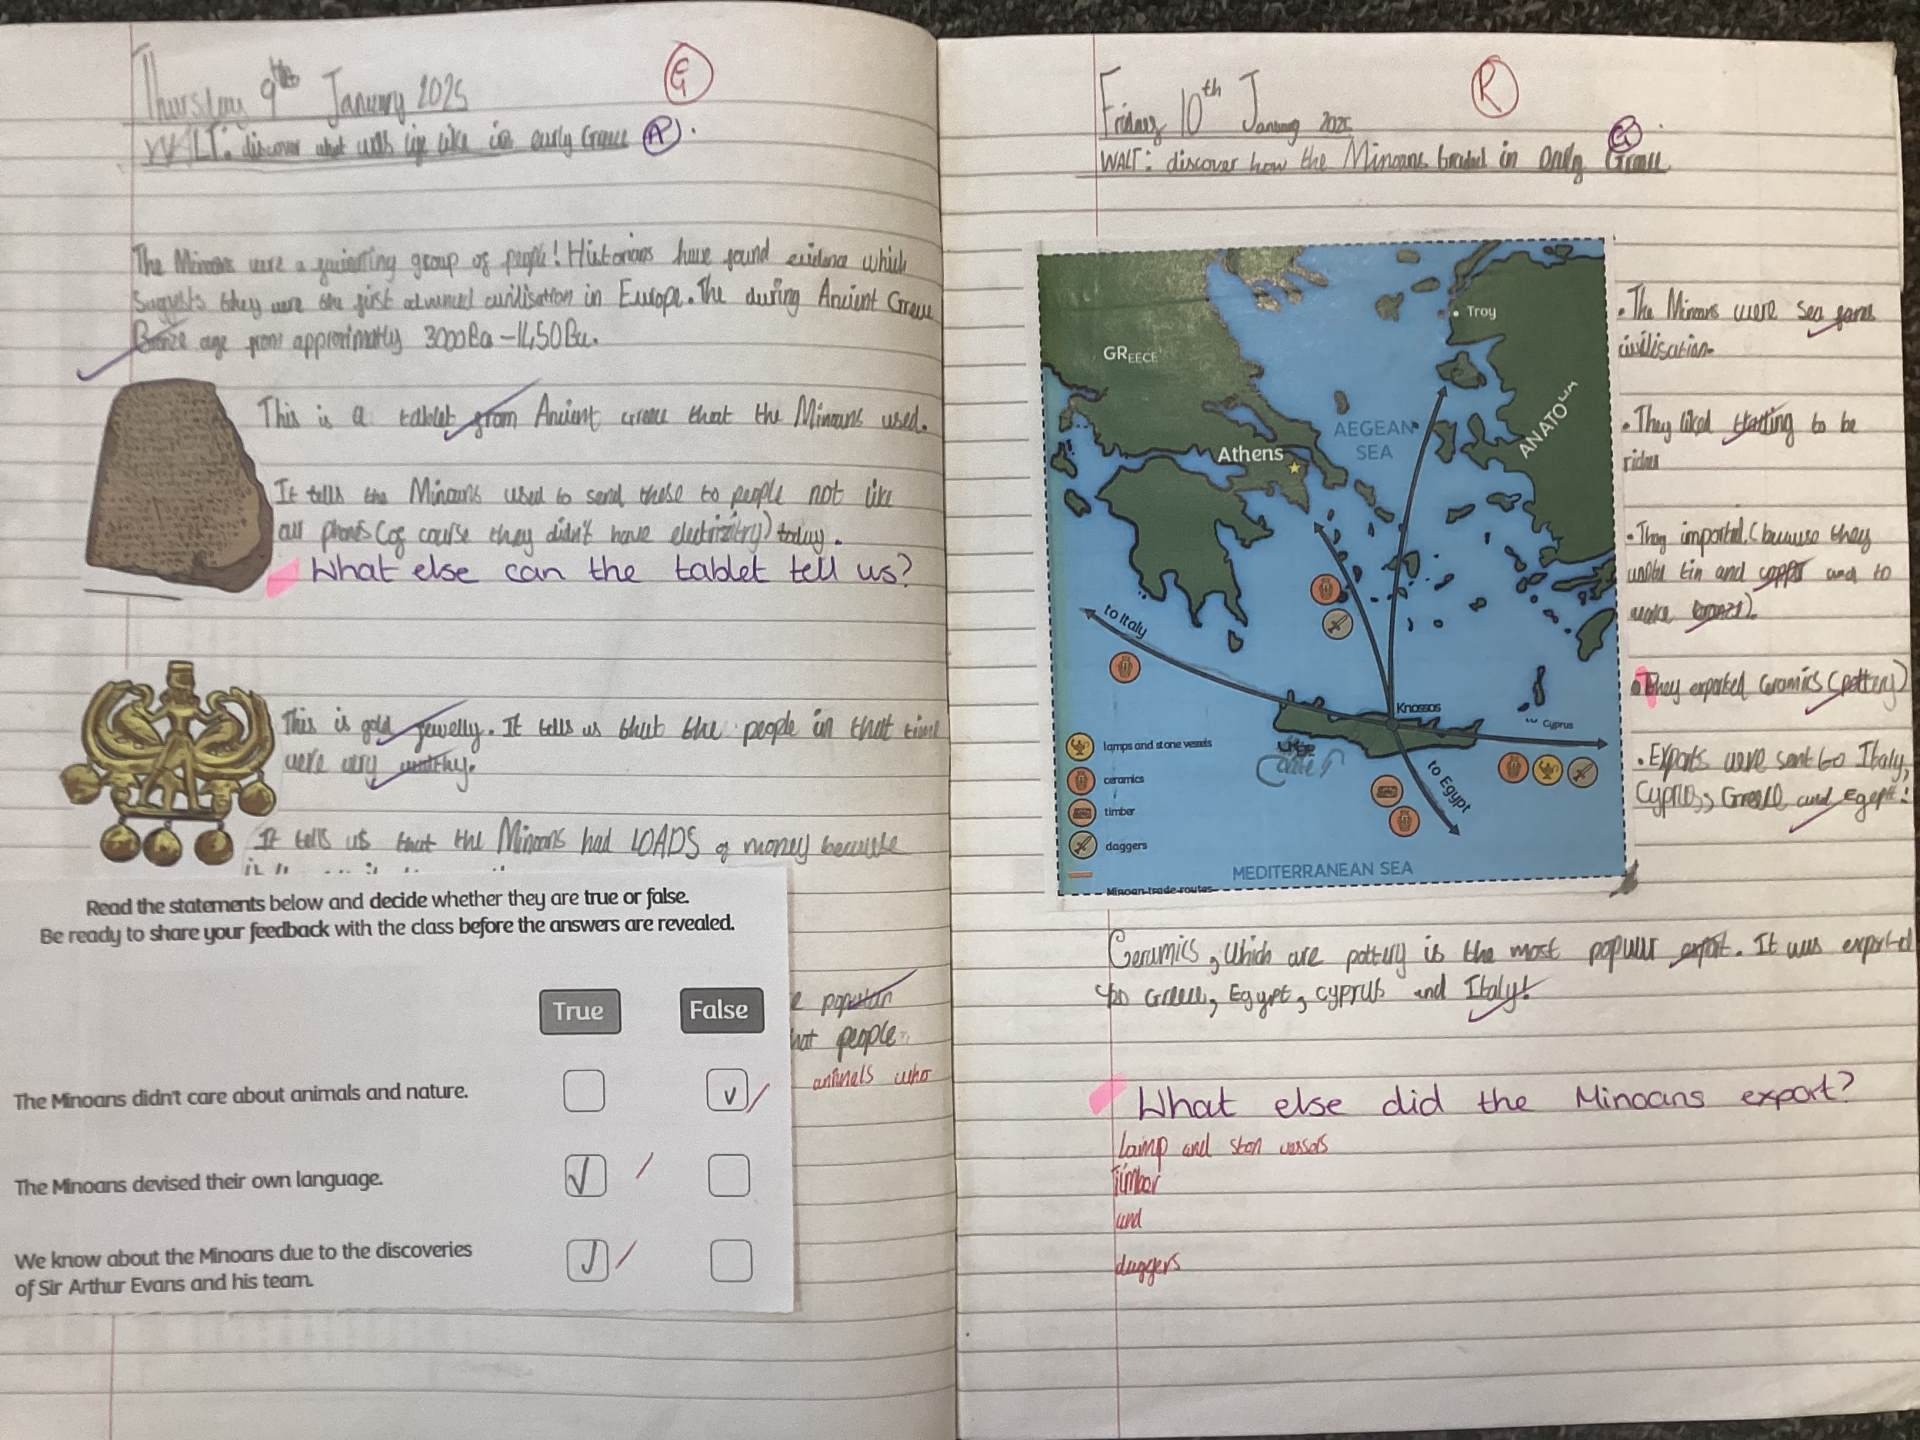 Thursday 9th January 2025
G
WALT: discover what was life like in early Greece
A
The Minoans were a group of people! Historians have found evidence which
suggests they were the first advanced civilisation in Europe. The during Ancient Greece
Bronze age from approximatly
This is a tablet from Ancient Greece that the Minoans used.
It tells the Minoans used to send these to people not like
all phones (of course they didn't have electrizitry) today.
What else can the tablet tell us?
This is gold jewelly. It tells us that the people in that time
were very
It tells us that the Minoans had LOADS of money because
Read the statements below and decide whether they are true or false.
Be ready to share your feedback with the class before the answers are revealed.
True False
The Minoans didn't care about animals and nature.
The Minoans devised their own language.
We know about the Minoans due to the discoveries
of Sir Arthur Evans and his team.
e
hat people
animels who
Friday 10th January 2025
R
WALT: discover how the Minoans traded in early Greece
G
GREECE
Troy
AEGEAN
SEA
ANATO
Athens
to Italy
Knossos
Cyprus
to Egypt
lamps and stone vessels
ceramics
timber
daggers
Minoan trade routes
MEDITERRANEAN SEA
• The Minoans were sea
civilisation.
• They liked to be
• They imported (because they
tin and copper and to
make bronze).
• They exported ceramics (pottery)
• Exports were sent to Italy,
Cyprus, Greece, and Egept!
Ceramics, Which are pottery is the most export. It was exported
to Greece, Egypt, cyprus and Italy!
What else did the Minoans export?
Lamp and ston vessels
Timber
and
daggers